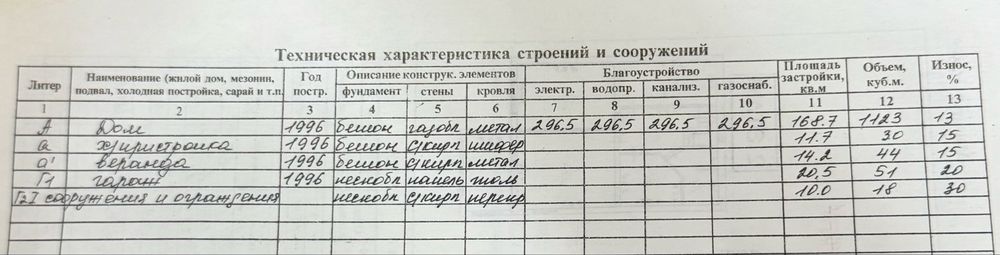 Техническая характеристика строений и сооружений
Литер | Наименование (жилой дом, мезонин, подвал, холодная постройка, сарай и т.п. | Год постр. | Описание конструк. элементов | Благоустройство | Площадь застройки, кв.м | Объем, куб.м. | Износ, %
фундамент | стены | кровля | электр. | водопр. | канализ. | газоснаб.
1 | 2 | 3 | 4 | 5 | 6 | 7 | 8 | 9 | 10 | 11 | 12 | 13
А | Дом | 1996 | бетон | газобл | метал | 296,5 | 296,5 | 296,5 | 296,5 | 168.7 | 1123 | 13
а | х/пристройка | 1996 | бетон | с/кирп | шифер | 11.7 | 30 | 15
а' | веранда | 1996 | бетон | с/кирп | метал | 14.2 | 44 | 15
Г1 | гараж | 1996 | пескобл | панель | толь | 20,5 | 51 | 20
Г2 | сооружения и ограждения | пескобл | с/кирп | перекр | 10.0 | 18 | 30